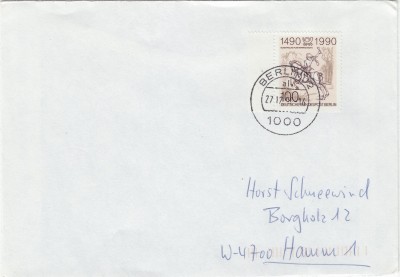 1490 500 1990
100
DEUTSCHE BUNDESPOST BERLIN
BERLIN
1000
Horst Schneewind
Borgholz 12
W-4700 Hamm 1